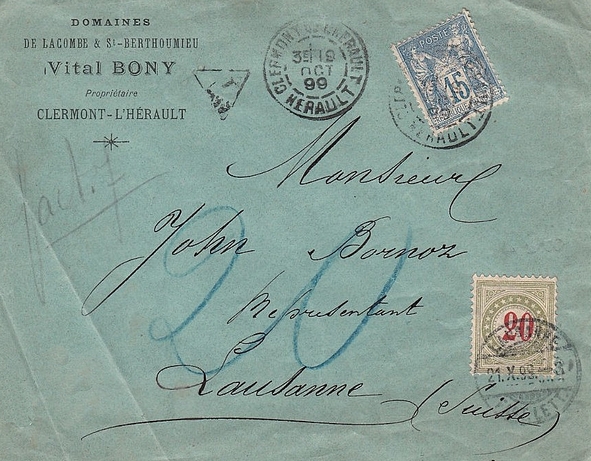 DOMAINES
DE LACOMBE & St-BERTHOUMIEU
Vital BONY
Propriétaire
CLERMONT-L'HÉRAULT
T
CLERMONT-L'HÉRAULT
3E 19
OCT
99
HERAULT
POSTE
15
HERAULT
fact. 7
Monsieur
John Bornoz
Représentant
Lausanne
(Suisse)
20
20
21.X.99
LETT